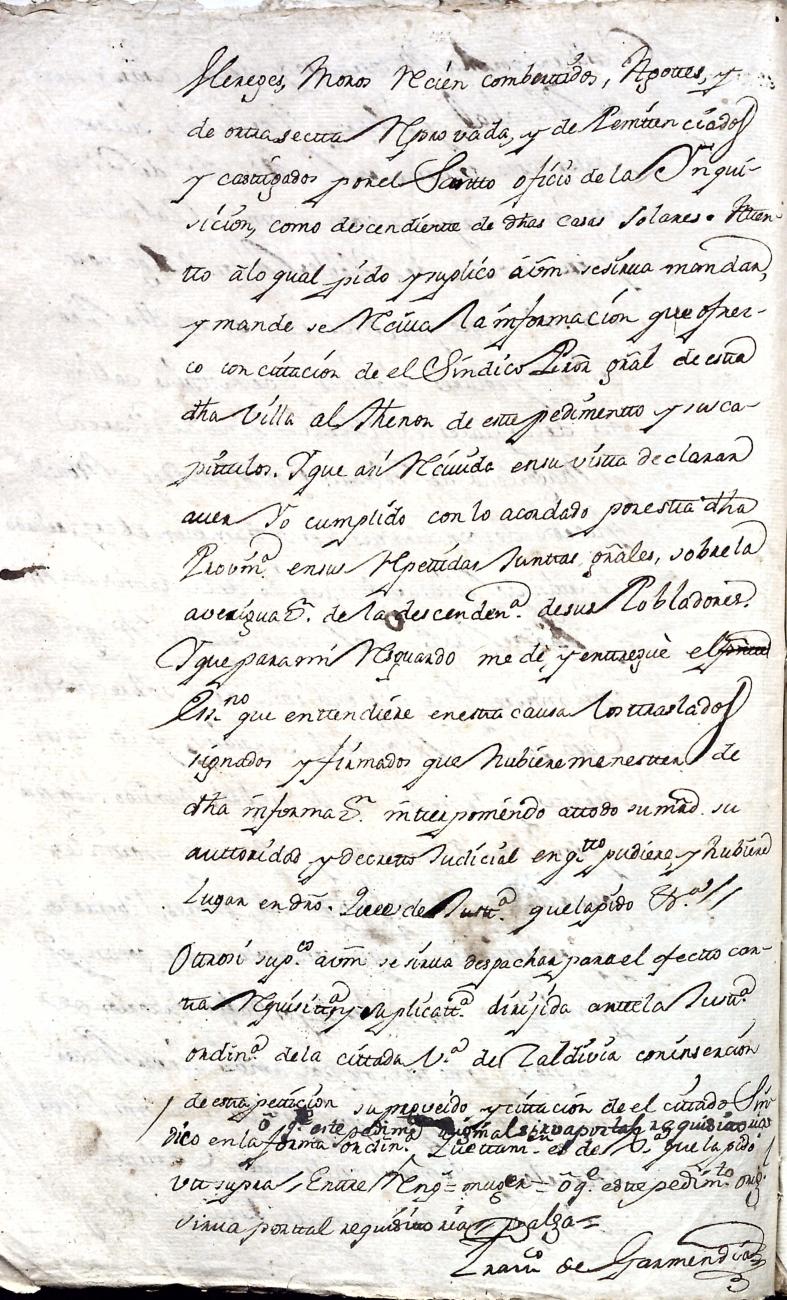 Hereges, Moros Rcien combertidos, Agottes, y
de ottra sectta Rprovada, y de Penitenciados
y casttigados por el Santto oficio de la Ynqui-
sicion, como descendiente de dhas casas solares. Atten-
tto a lo qual pido y suplico a vm se sirva mandar,
y mande se Rciva la informacion que ofrez-
co con cittacion de el Sindico Pror gral de estta
dha Villa al thenor de este pedimentto y sus ca-
pittulos. Y que asi Rcivida en su vistta declarar
aver Yo cumplido con lo acordado por estta dha
Provinª. en sus Rpettidas Junttas grales, sobre la
averiguaon. de la descendenª. de sus Pobladores.
Y que para mi Rsguardo me de, y enttregue el
Essno que enttendiere en estta causa los ttraslados
signados y firmados que hubiere menestter de
dha informaon. intterponiendo a ttodo su md. su
auttoridad y decretto Judicial en qtto pudiere, y hubiere
Lugar en dro. Que es de Justtª. que la pido &ª. //
Ottrosi supco. a vm se sirva despachar para el efectto car-
tta Rquisittª y suplicattª. dirijida antte la Justtª
ordinª. de la cittada Vª. de Zaldivia con insercion
de estta petticion su proveido y cittacion de el cittado Sin-
ô qe. este pedimto original sirva por tal requisitoria
dico en la forma ordinª. Que ttamn. es de Jª. que la pido
vtt supra / Entre Rngs = muger = ô qe. este pedimto orig.
sirva por ttal requisitoria = valga =
Franco de Garmendia